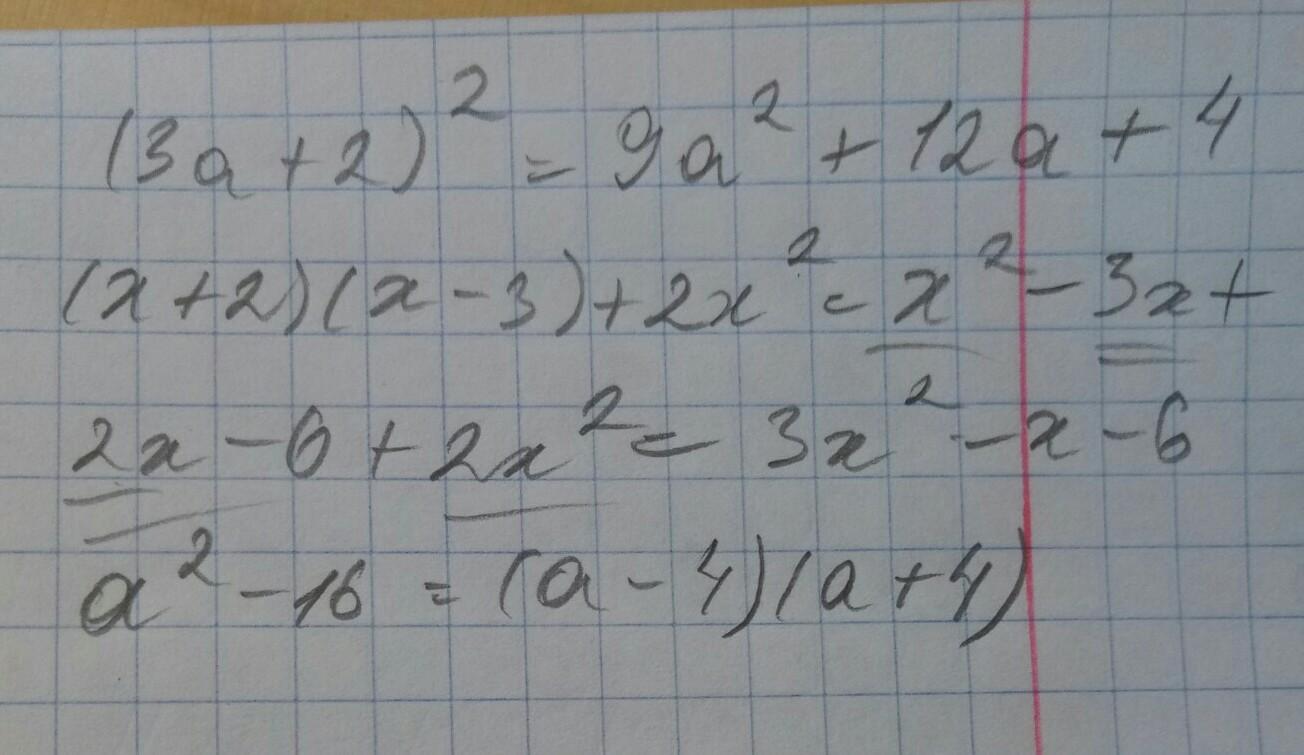 (3a+2)² = 9a² + 12a + 4
(x+2)(x-3)+2x² = x² - 3x +
2x - 6 + 2x² = 3x² - x - 6
a² - 16 = (a - 4)(a + 4)